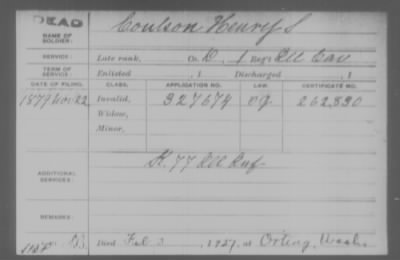 DEAD
NAME OF SOLDIER: Coulson Henry S
SERVICE: Late rank, Co. D, 1 Reg't Ill Cav
TERM OF SERVICE: Enlisted , 1 Discharged , 1
DATE OF FILING. CLASS. APPLICATION NO. LAW. CERTIFICATE NO.
1879 Nov 22 Invalid, 327674 262,830
Widow,
Minor,
ADDITIONAL SERVICES: K. 77 Ill Inf
REMARKS:
Died Feb 3, 1927, at Orting, Wash.